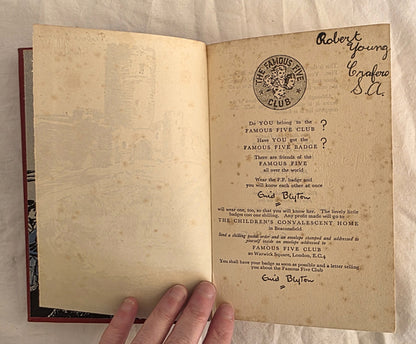 Robert
Young
Crafers
S.A.
THE FAMOUS FIVE
CLUB
Do YOU belong to the
FAMOUS FIVE CLUB ?
Have YOU got the
FAMOUS FIVE BADGE ?
There are friends of the
FAMOUS FIVE
all over the world
Wear the F.F. badge and
you will know each other at once
Enid Blyton
will wear one, too, so that you will know her. The lovely little
badges cost one shilling. Any profit made will go to
THE CHILDREN'S CONVALESCENT HOME
in Beaconsfield
Send a shilling postal order and an envelope stamped and addressed to
yourself inside an envelope addressed to
FAMOUS FIVE CLUB
20 Warwick Square, London, E.C.4
You shall have your badge as soon as possible and a letter telling
you about the Famous Five Club
Enid Blyton